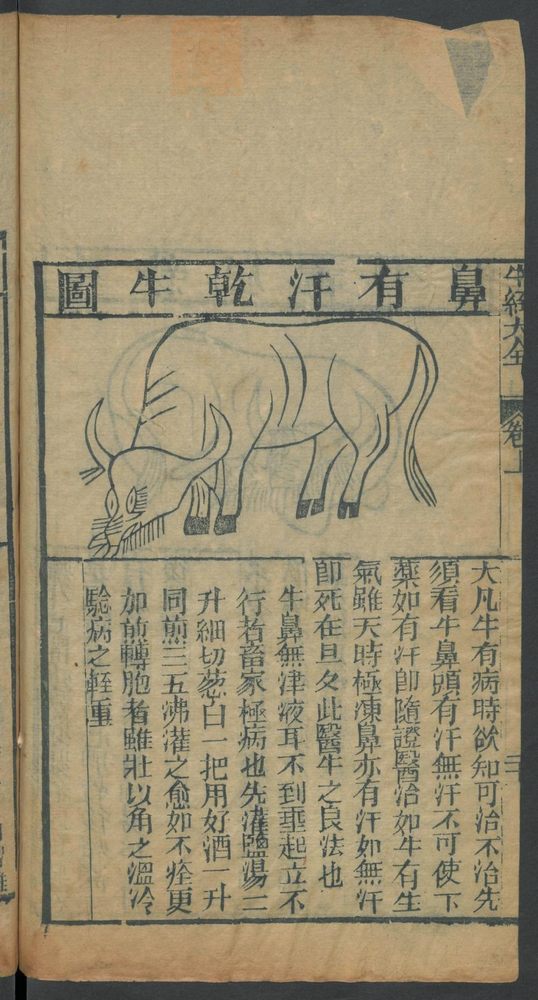 牛經大全
卷上
鼻有汗乾牛圖
大凡牛有病時欲知可治不治先
須看牛鼻頭有汗無汗不可使下
藥如有汗即隨證醫治如牛有生
氣雖天時極凍鼻亦有汗如無汗
即死在旦夕此醫牛之良法也
牛鼻無津液耳不到垂起立不
行者畜家極病也先灌鹽湯三
升細切葱白一把用好酒一升
同煎三五沸灌之愈如不痊更
加前轉胞者雖壯以角之溫冷
驗病之輕重